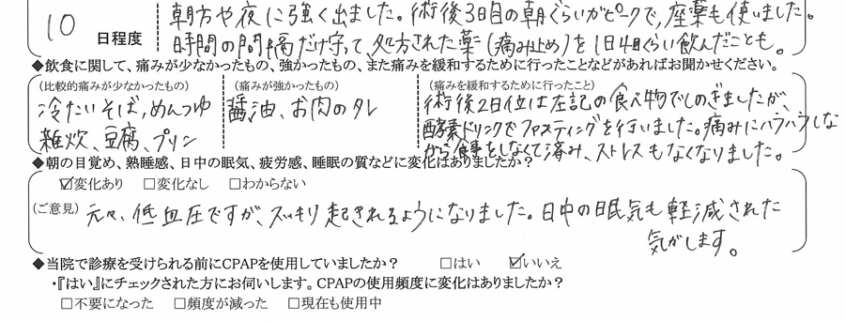 朝方や夜に強く出ました。術後3日目の朝ぐらいがピークで,座薬も使いました。
10 日程度
時間の間隔だけ守って、処方された薬(痛み止め)を1日4回くらい飲んだことも。
◆飲食に関して、痛みが少なかったもの、強かったもの、また痛みを緩和するために行ったことなどがあればお聞かせください。
(比較的痛みが少なかったもの) (痛みが強かったもの) (痛みを緩和するために行ったこと)
冷たいそば,めんつゆ 醤油、お肉のタレ 術後2日位は左記の食べ物でしのぎましたが、
雑炊、豆腐、プリン 酵素ドリンクでファスティングを行いました。痛みにハラハラしな
がら食事をしなくて済み、ストレスもなくなりました。
◆朝の目覚め、熟睡感、日中の眠気、疲労感、睡眠の質などに変化はありましたか?
☑変化あり □変化なし □わからない
(ご意見) 元々、低血圧ですが、スッキリ起きれるようになりました。日中の眠気も軽減された
気がします。
◆当院で診療を受けられる前にCPAPを使用していましたか? □はい ☑いいえ
・『はい』にチェックされた方にお伺いします。CPAPの使用頻度に変化はありましたか?
□不要になった □頻度が減った □現在も使用中